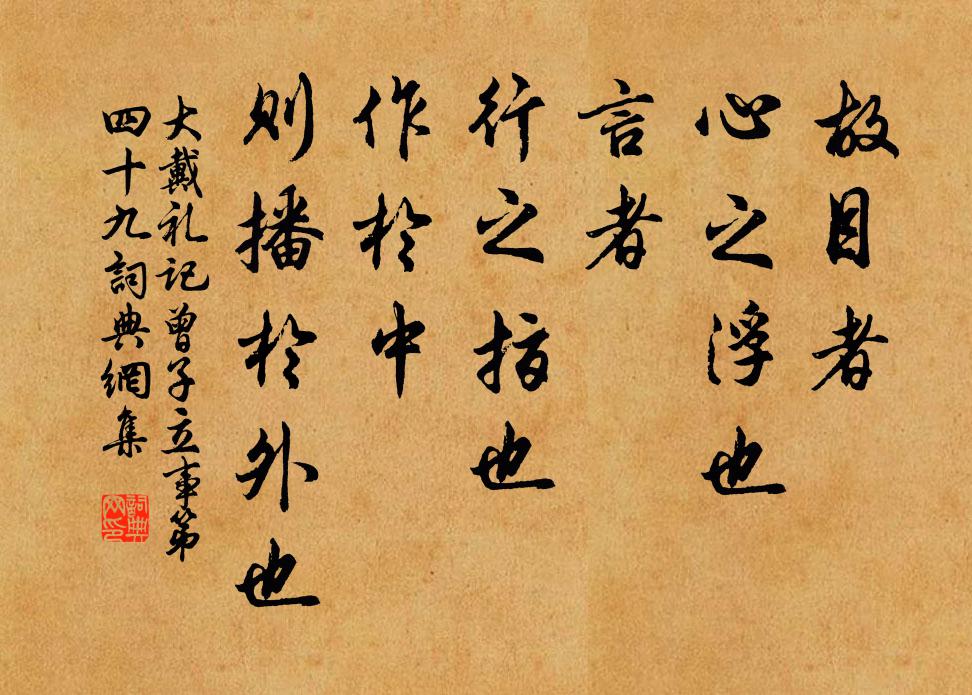 故目者
心之浮也
言者
行之指也
作於中
則播於外也
大戴礼记曾子立事第
四十九詞典網集
詞典
网印